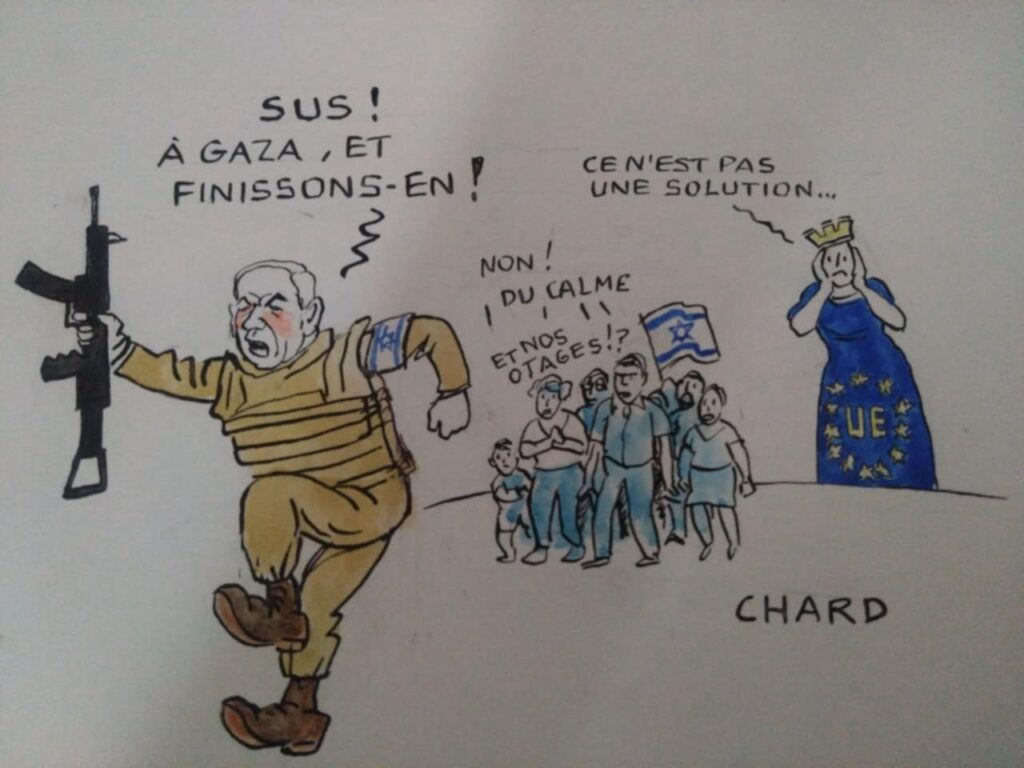 SUS !
À GAZA, ET
FINISSONS-EN !
CE N'EST PAS
UNE SOLUTION...
NON !
DU CALME
ET NOS
OTAGES !?
UE
CHARD